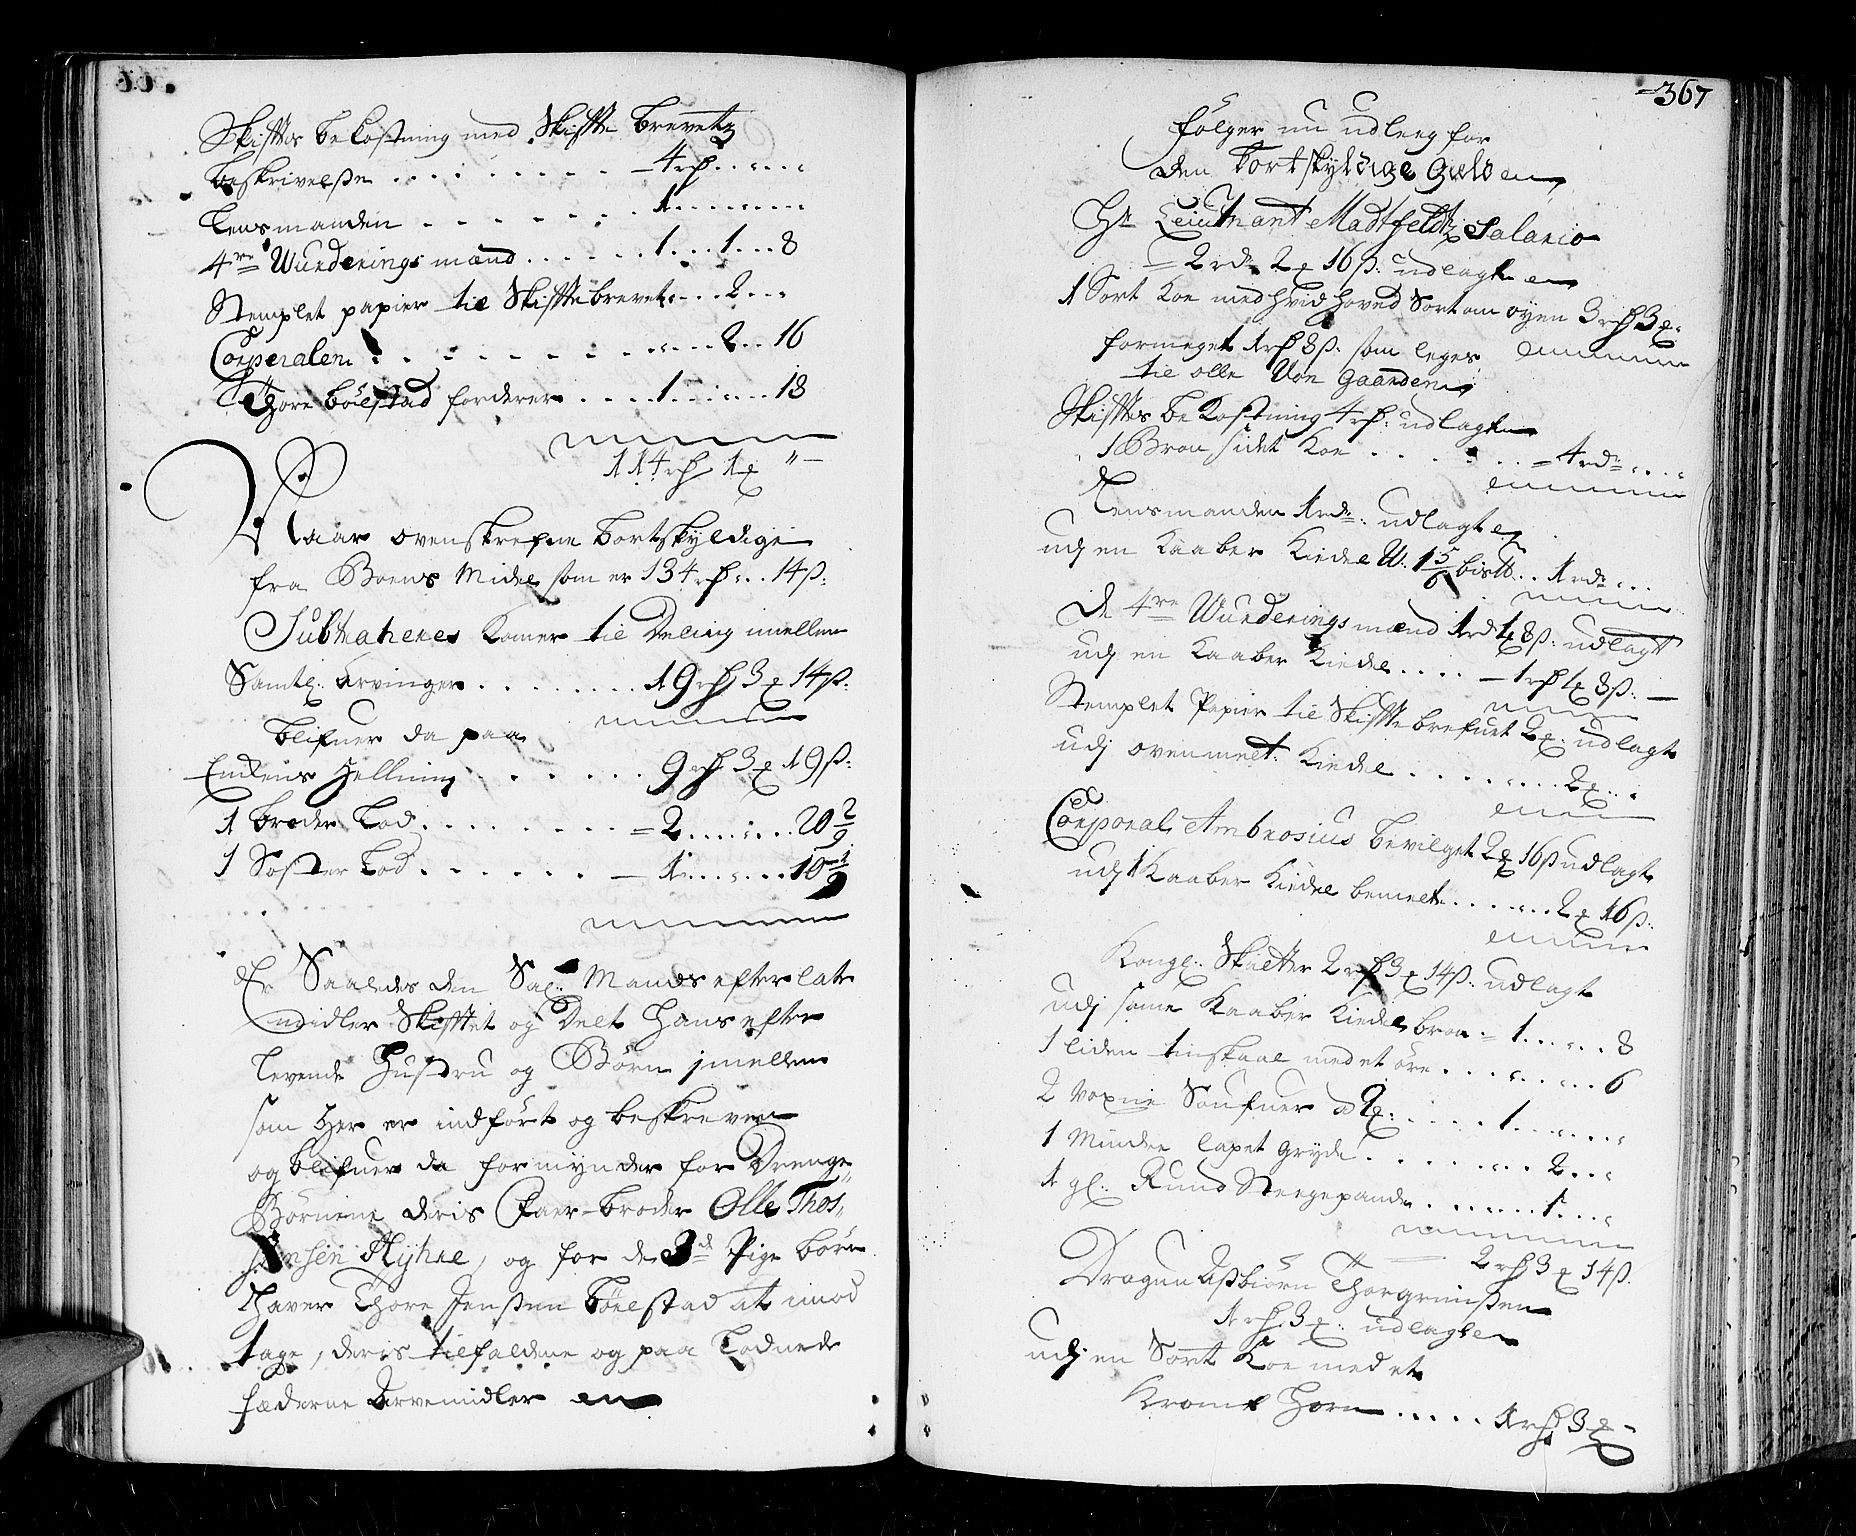 Skifttes bekostning med Skiftte Brevetz
beskrivelße . . . . . . . . . — 4 rd . . „ . .
Lensmanden . . . . . . . 1 . . . . . .
4re Wurderings mænd . . . . . . 1 . . . 1 . . . 8
Stemplet papier til Skifttebrevet . . . 2 . . .
Corperalen . . . . . . . . . „ . . . 2 . . 16
Thore bölstad forderer . . . . 1 . . . . . 18
114 rd 1 „ —
Naar ovenskrefne bortskyldige
fra Boens Midel som er 134 rd „ . . 14 ß:
Subtraheres komer til Deling imellem
Samtl: Arvinger . . . . . . . . 19 rd 3 14 ß:
blifuer da paa
Enkens Helling . . . . . . 9 rd 3 19 ß:
1 broder Lod . . . . . . . . = 2 . . . . . . 20 2/9
1 Søster Lod . . . . . . — 1 . . . . . . 10 1/9
Er Saaledes den Sal: Mands efterlate
midler Skifttet og Delt Hans efter
levende Hustru og Børn jmellem
som Her er indført og beskreven
og blifuer da formynder for Drenge
Børnene deris Faer-broder Olle Thos,
Jensen Myhre, og for de 3de Pige børn
Haver Thore Jenßen bölstad at imod
tage, deris tilfaldene og paa Lodnede
fæderne Arvemidler en

367
Fölger nu udleeg for
den bortskyldige Gield en
Hr Leiutnant Madtfeldtz Salario
= 2 rd. 2 16 ß: udlagt en
1 Sort Koe med hvid hoved Sort om öyen 3 rd 3
formeget 1 rd 8 ß: som leges
til olle Von Gaarden
Skifttes bekostning 4 rd: udlagt en
1 Bron sidet Koe . . . . . . = 4 rd . . .
Lensmanden 1 rd: udlagt en
udj en Kaaber Kiedel W: 1 5/6 bis . . 1 rd . . .
De 4re Wurderings mænd 1 rd 1 8 ß: udlagt
udj en Kaaber Kiedel . . . . — 1 rd 1 8 ß: —
Stemplet Papier til Skifttebrefuet 2 : udlagt
udj ovenmelt: Kiedel . . . . . . . 2 . . .
Corporal Ambrosius bevilget 2 16 ß udlagt
udj 1 Kaaber Kiedel bemelt . . . . . . 2 16 ß:
Kongl: Skatter 2 rd 3 14 ß: udlagt
udj same Kaaber Kiedel, = 1 . . . . . 8
1 liden tinskaal med et öre . . . . . . . 6
2 Sölfuer a . . . . . 1 . . . . .
1 Minder lapet Gryde . . . . . . . . 2 . . .
1 gl: Rund Steegepande . . . . . . 1 . . .
2 rd 3 14 ß.
Dragun Aßbiörn Thorgrimßen
1 rd 3 : udlagt en
udj en Sort Koe med et
Kromt Horn . . . . . 1 rd 3